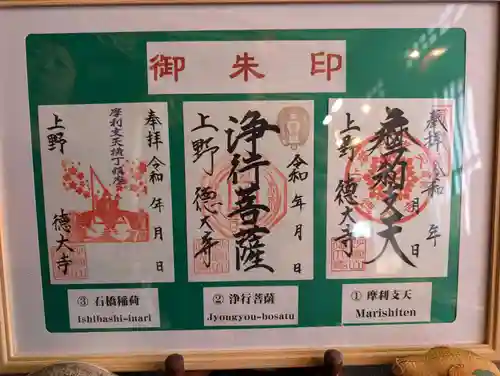 御朱印
奉拝
令和 年 月 日
摩利支天
上野 徳大寺
① 摩利支天
Marishiten
令和 年 月 日
浄行菩薩
上野 徳大寺
② 浄行菩薩
Jyongyou-bosatu
奉拝
令和 年 月 日
上野 徳大寺
③ 石橋稲荷
Ishibashi-inari